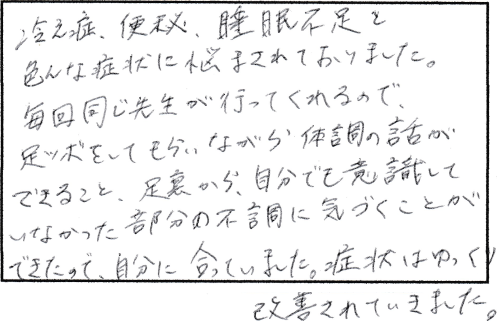 冷え症、便秘、睡眠不足と
色んな症状に悩まされておりました。
毎回同じ先生が行ってくれるので、
足ツボをしてもらいながら体調の話が
できること、足裏から、自分でも意識して
いなかった部分の不調に気づくことが
できたので、自分に合っていました。症状はゆっくり
改善されていきました。